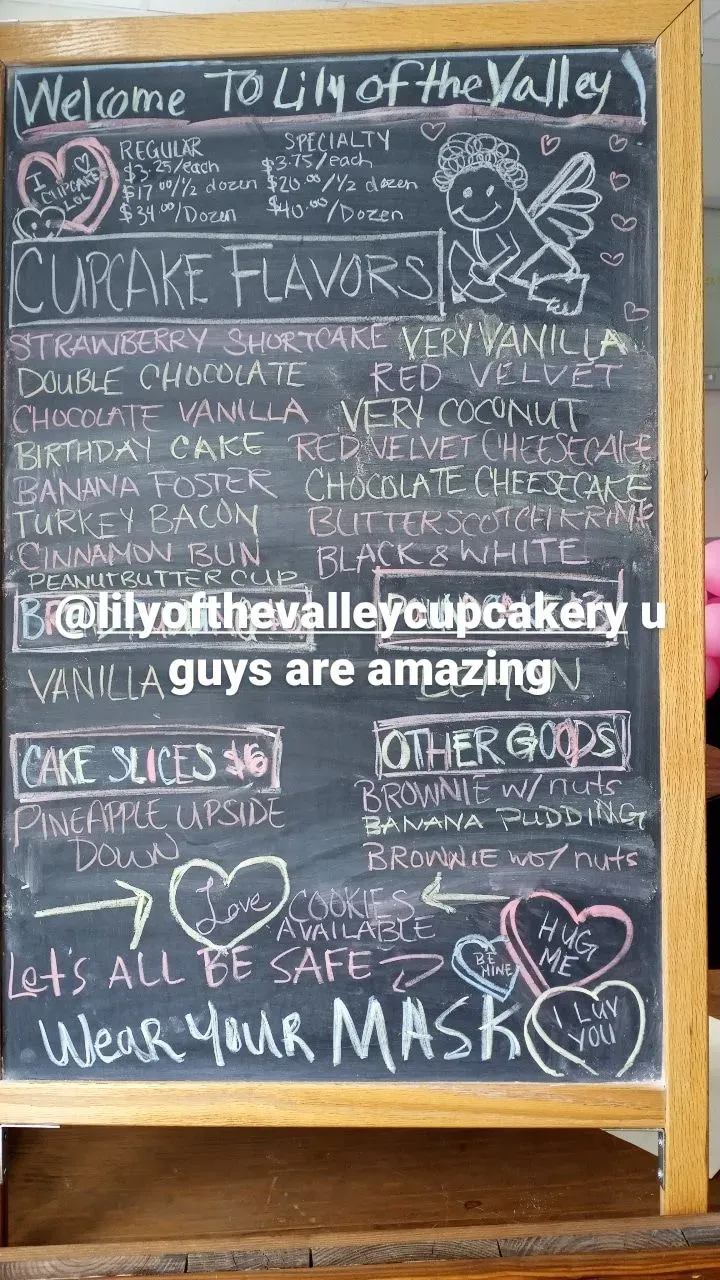 Welcome To Lily of the Valley
I
CUPCAKE
LOL
REGULAR
$3.25/each
$17.00/1/2 dozen
$34.00/Dozen
SPECIALTY
$3.75/each
$20.00/1/2 dozen
$40.00/Dozen
CUPCAKE FLAVORS
STRAWBERRY SHORTCAKE VERY VANILLA
DOUBLE CHOCOLATE RED VELVET
CHOCOLATE VANILLA VERY COCONUT
BIRTHDAY CAKE RED VELVET CHEESECAKE
BANANA FOSTER CHOCOLATE CHEESECAKE
TURKEY BACON BUTTERSCOTCH KRIMP
CINNAMON BUN BLACK & WHITE
PEANUTBUTTER CUP
@lilyofthevalleycupcakery u
guys are amazing
VANILLA
LEMON
CAKE SLICES $6
PINEAPPLE UPSIDE
DOWN
OTHER GOODS
BROWNIE w/ nuts
BANANA PUDDING
BROWNIE wo/ nuts
Love COOKIES
AVAILABLE
Let's ALL BE SAFE
Wear YOUR MASK
BE
MINE
HUG
ME
I LUV
YOU